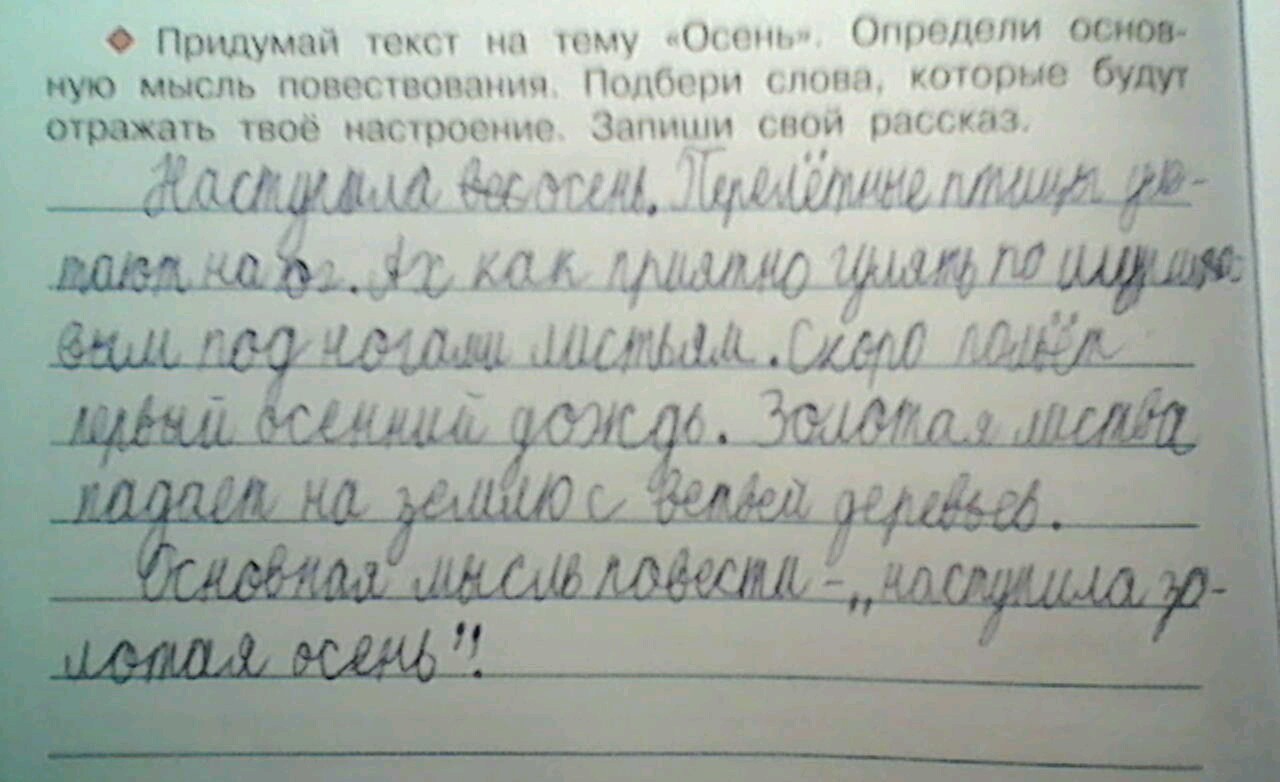 Придумай текст на тему «Осень». Определи основ-
ную мысль повествования. Подбери слова, которые будут
отражать твоё настроение. Запиши свой рассказ.
Наступила вес осень. Перелётные птицы уле-
тают на юг. Ах как приятно гулять по
вым под ногами листьям. Скоро польёт
первый осенний дождь. Золотая листва
падает на землю с ветвей деревьев.
Основная мысль повести - „наступила зо-
лотая осень”!